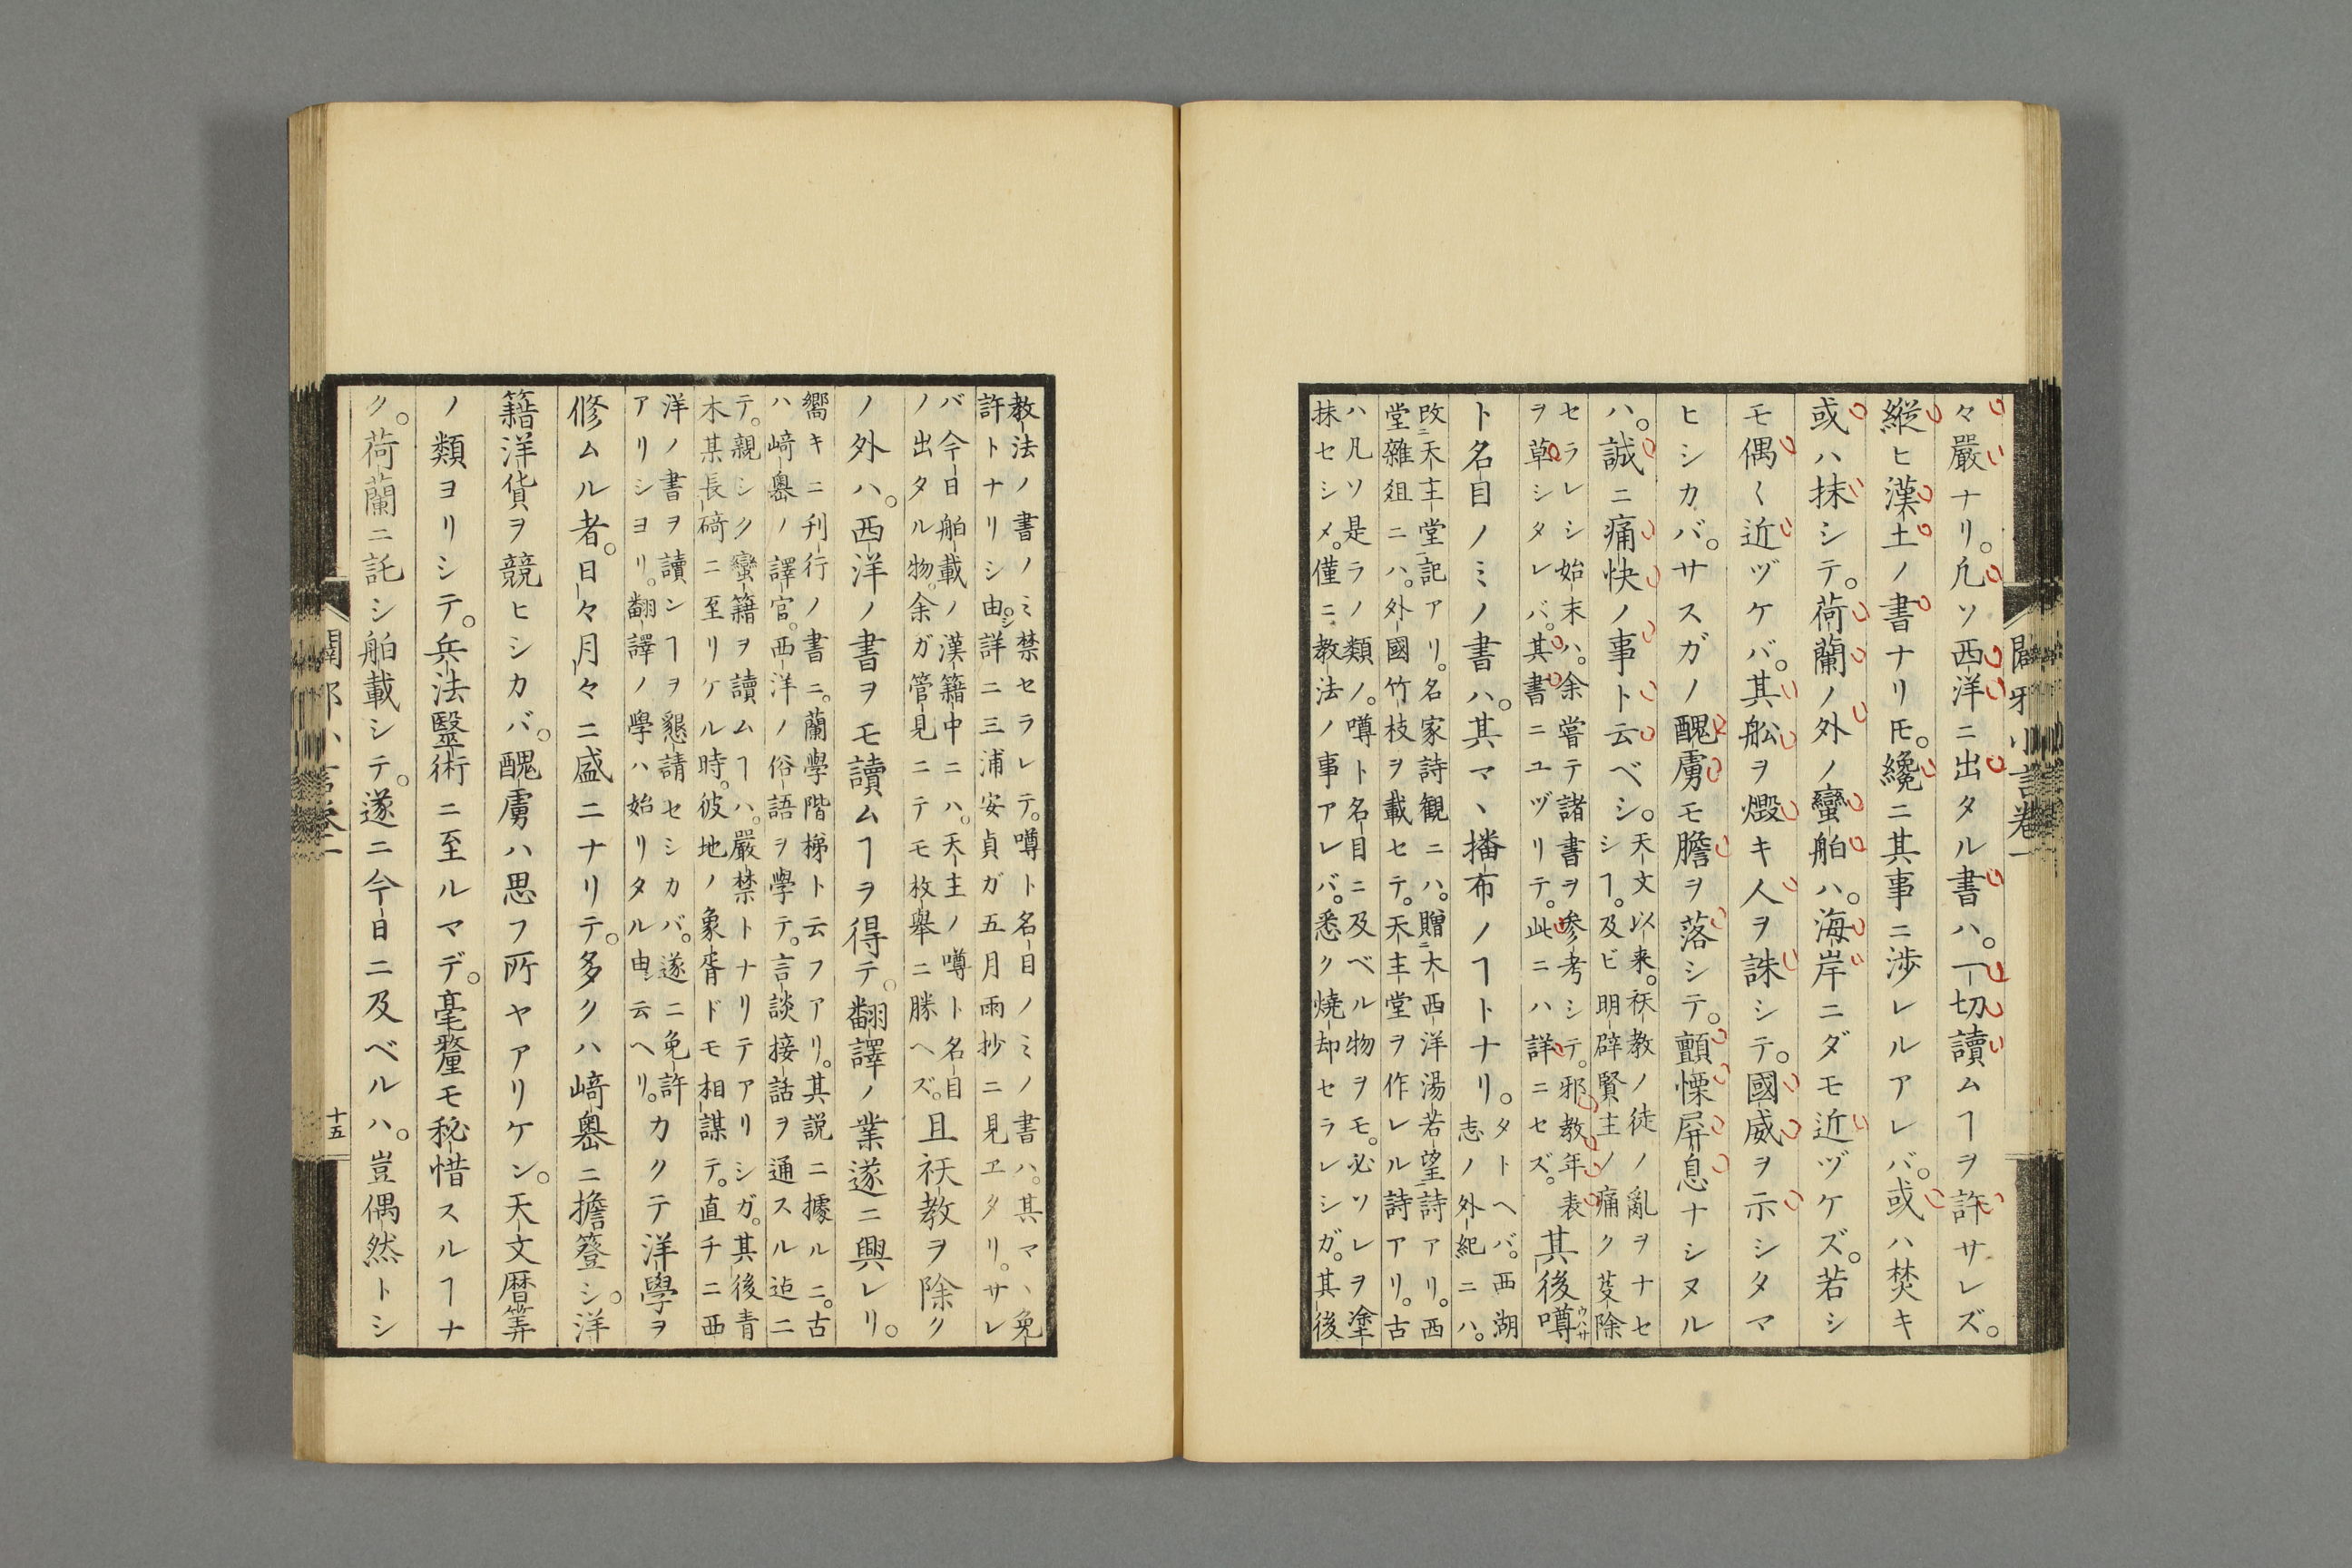 々嚴ナリ。凡ソ西洋ニ出タル書ハ。一切讀ムヿヲ許サレズ。
縱ヒ漢土ノ書ナリ𪜈。纔ニ其事ニ渉レルアレバ。或ハ焚キ
或ハ抹シテ。荷蘭ノ外ノ蠻舶ハ。海岸ニダモ近ヅケズ。若シ
モ偶〱近ヅケバ。其舩ヲ燬キ人ヲ誅シテ。國威ヲ示シタマ
ヒシカバ。サスガノ醜虜モ膽ヲ落シテ。顫慄屏息ナシヌル
ハ。誠ニ痛快ノ事ト云ベシ。
天文以来。祅教ノ徒ノ亂ヲナセ
シヿ。及ビ明辟賢主ノ痛ク芟除
セラレシ始末ハ。余嘗テ諸書ヲ参考シテ。邪教年表
ヲ草シタレバ。其書ニユヅリテ。此ニハ詳ニセズ。
其後噂ウハサ
ト名目ノミノ書ハ。其マヽ播布ノヿトナリ。
タトヘバ。西湖
志ノ外紀ニハ。
改天主堂記アリ。名家詩観ニハ。贈大西洋湯若望詩アリ。西
堂雜俎ニハ。外國竹枝ヲ載セテ。天主堂ヲ作レル詩アリ。古
ハ凡ソ是ラノ類ノ。噂ト名目ニ及ベル物ヲモ。必ソレヲ塗
抹セシメ。僅ニ教法ノ事アレバ。悉ク燒却セラレシガ。其後
闢邪小言卷一
教法ノ書ノミ禁セラレテ。噂ト名目ノミノ書ハ。其マヽ免
許トナリシ由シ。詳ニ三浦安貞ガ五月雨抄ニ見エタリ。サレ
バ今日舶載ノ漢籍中ニハ。天主ノ噂ト名目
ノ出タル物。余ガ管見ニテモ枚擧ニ勝ヘズ。
且祅教ヲ除ク
ノ外ハ。西洋ノ書ヲモ讀ムヿヲ得テ。翻譯ノ業遂ニ興レリ。
嚮キニ刋行ノ書ニ。蘭學階梯ト云フアリ。其説ニ據ルニ。古
ハ﨑嶴ノ譯官。西洋ノ俗語ヲ學テ。言談接話ヲ通スル迠ニ
テ。親シク蠻籍ヲ讀ムヿハ。嚴禁トナリテアリシガ。其後青
木某長碕ニ至リケル時。彼地ノ象胥ドモ相謀テ。直チニ西
洋ノ書ヲ讀ンヿヲ懇請セシカバ。遂ニ免許
アリシヨリ。翻譯ノ學ハ始リタル由シ云ヘリ。
カクテ洋學ヲ
修ムル者。日々月々ニ盛ニナリテ。多クハ﨑嶴ニ擔簦シ。洋
籍洋貨ヲ競ヒシカバ。醜虜ハ思フ所ヤアリケン。天文暦筭
ノ類ヨリシテ。兵法醫術ニ至ルマデ。毫釐モ秘惜スルヿナ
ク。荷蘭ニ託シ舶載シテ。遂ニ今日ニ及ベルハ。豈偶然トシ
十五